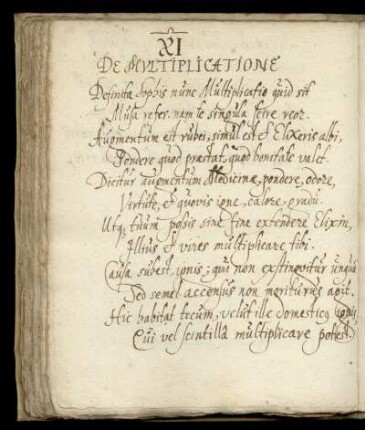 XI
DE MVLTIPLICATIONE
Definita sophis nunc Multiplicatio quid sit
Musa refer. nam te singula scire reor.
Augmentum est rubei, simul est et Elixeris albi,
Pondere quod præstat, quod bonitate valet.
Dicitur augmentum Medicinæ, pondere, odore,
Virtute, et quovis igne, calore, gradu.
Utq; tuum possis sine fine extendere Elixir,
Illius et vires multiplicare tibi.
Causa subest, ignis; qui non exstinguitur unquã
Sed semel accensus non moriturus agit.
Hic habitat tecum, velut ille domesticq ignis,
Cui vel scintillã multiplicare potest.